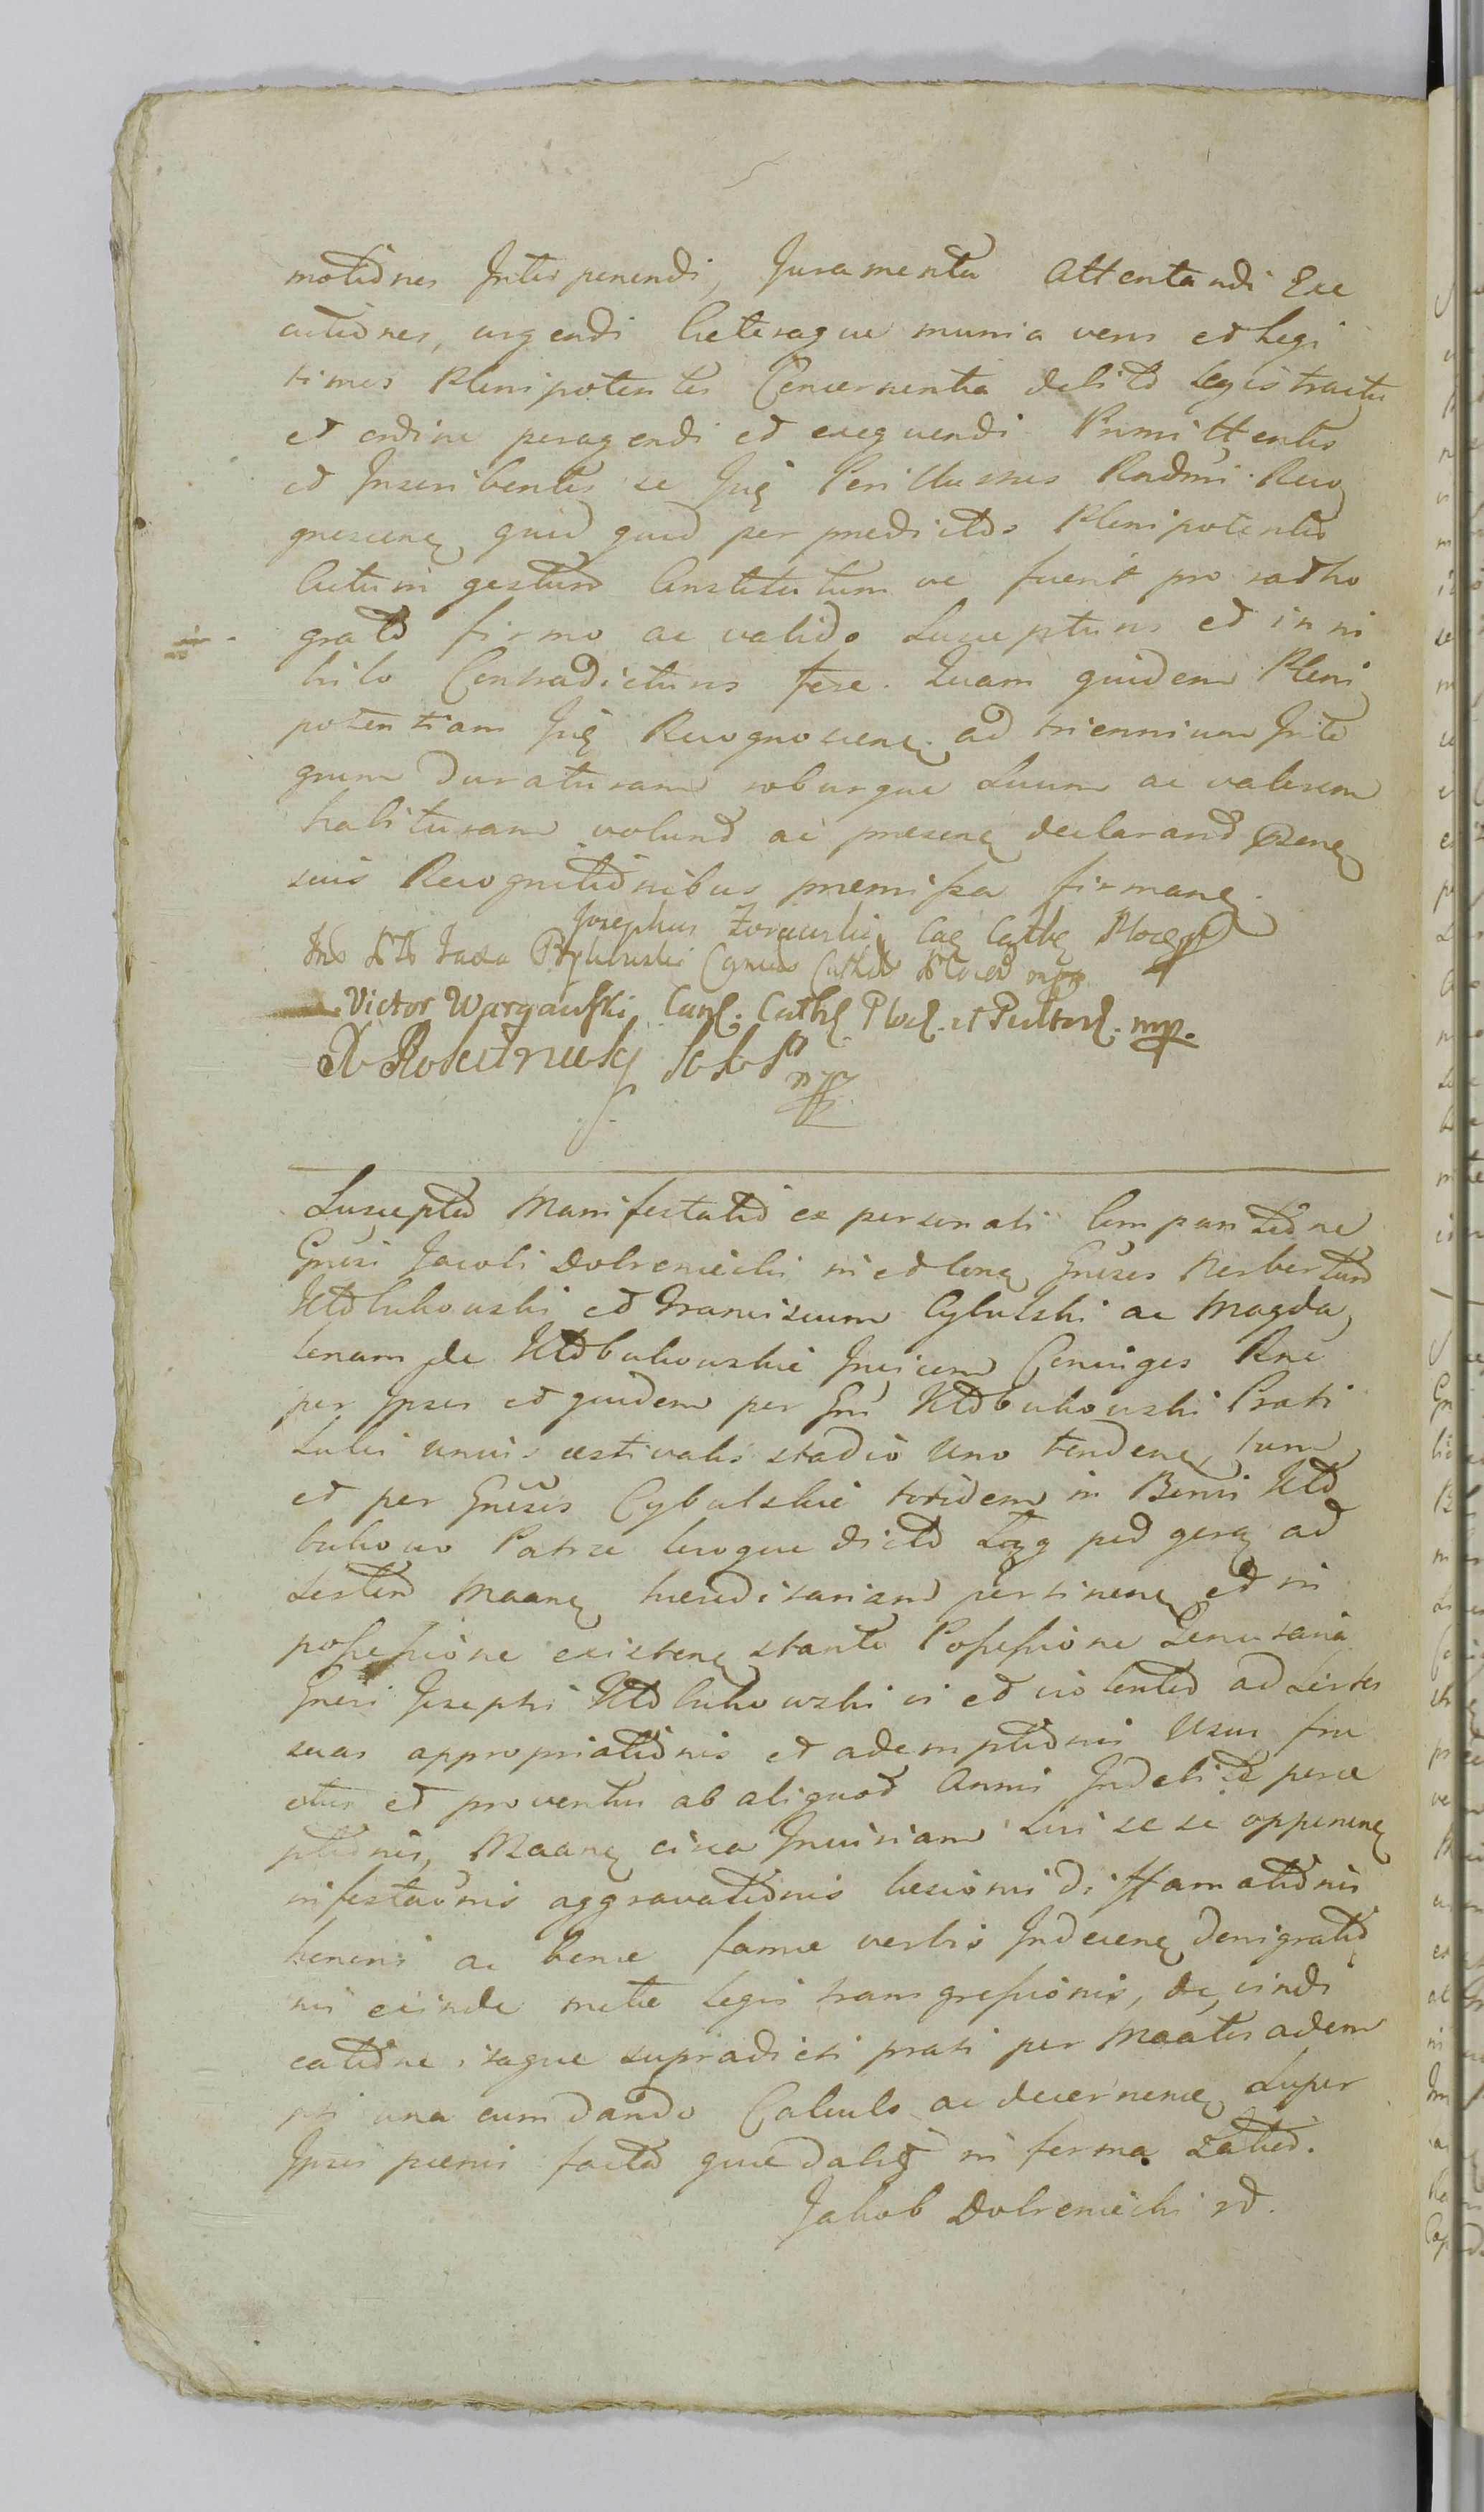 motiones Interponendi, Juramenta attentandi Exe
cutiones, urgendi Caeteraque munia veros et Legi
timos Plenipotentes Concernentia debito Legis tractu
et ordine peragendi et exequendi Promittentes
et Inscribentes se Iidem Perillustres Rndmi Reco
gnoscen quid quid per predictos Plenipotentes
Actum gestum Constitutum ve fuerit pro ratho
grato firmo ac valido Suscepturos et in ni
hilo Contradicturos fore. Quam quidem Pleni
potentiam Iidem Recognoscen ad triennium Inte
grum Duraturam roburque Suum ac valorem
habituram volunt ac presen declarant Psen
suis Recognitionibus premissa firman.
Josephus Cac Cathe Ploc mp
Cancus Cathe Ploc mp
Victor Wargawski Canl. Cathl Plocl. et Pultosl. mp.
Suscepta Manifestatio ex personali Comparitione
Gnosi Jacobi Dobreniecki in et Cona Gnosos Norbertum
Franciscum Cybulski ac Magda
lenam de Invicem Coniuges Rne
per Ipsos et quidem per Gm Prati
Sulci unius aestivalis stadio Uno tenden, tum
et per Gnosos Cybulskie totidem in Bonis
Locoque dicto Ług ad
Sortem Maan haereditariam pertinen et in
possessione existen stante Possessione Tenutaria
Gnosi Josephi vi et violenter ad Sortes
suas appropriationis et ademptionis Usus fru
ctus et proventus ab aliquot Annis Indebitae perce
ptionis, Maan circa Iniuriam Sui sese opponen
infestaonis aggravationis laesionis diffamationis
honoris ac bonae famae verbis Indecen denigratio
nis exinde metae Legis transgressionis, de vindi
catione itaque supradicti prati per Maatos adem
pti una cum dando Calculo ac decernen Super
Ipsis paenis facta quae dabit in forma Latio.
Jakob Dobreniecki